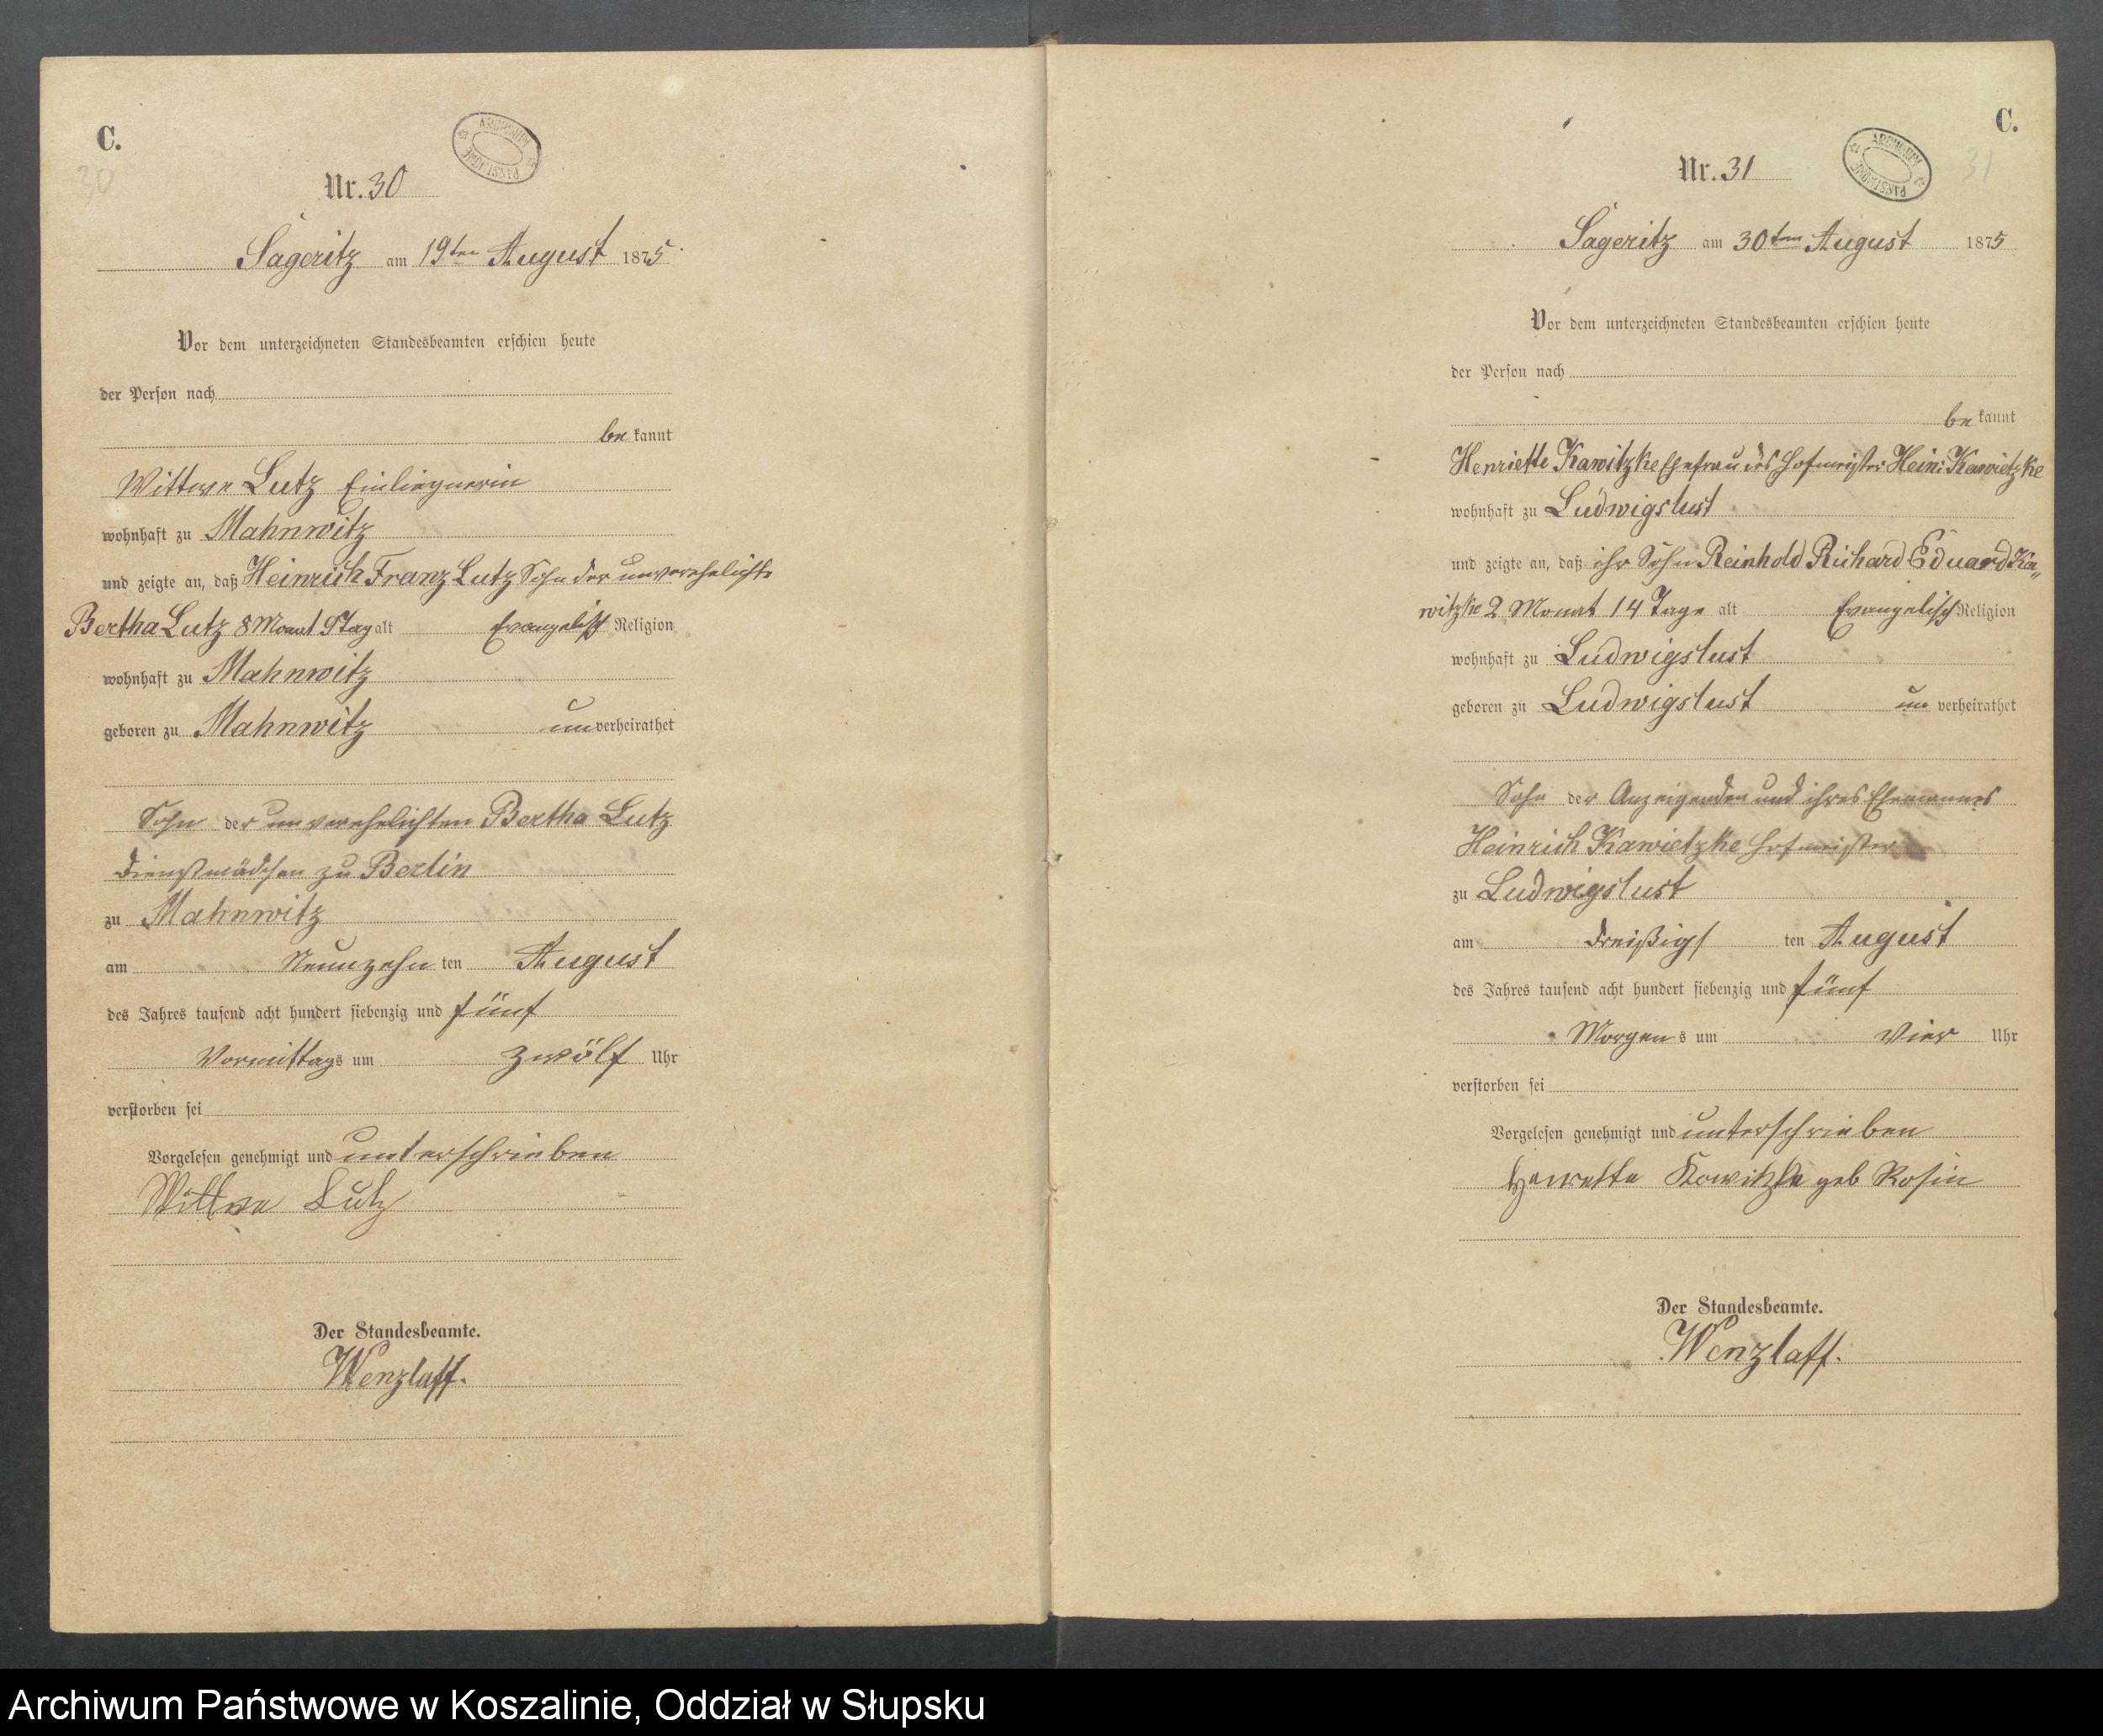 C.
30
ARCHIWUM PAŃSTWOWE
Nr. 30
Sageritz am 19ten August 1875.
Vor dem unterzeichneten Standesbeamten erschien heute
der Person nach
be kannt
Wittwe Lutz Einliegnerin
wohnhaft zu Mahnwitz
und zeigte an, daß Heinrich Franz Lutz Sohn der unverehelichte
Bertha Lutz 8 Monat 9 Tag alt Evangelisch Religion
wohnhaft zu Mahnwitz
geboren zu Mahnwitz un verheirathet
Sohn der unverehelichten Bertha Lutz
Dienstmädchen zu Berlin
zu Mahnwitz
am Neunzehn ten August
des Jahres tausend acht hundert siebenzig und fünf
Vormittags um zwölf Uhr
verstorben sei
Vorgelesen genehmigt und unterschrieben
Wittwe Lutz
Der Standesbeamte.
Wenzlaff.
C.
31
ARCHIWUM PAŃSTWOWE
Nr. 31
Sageritz am 30ten August 1875
Vor dem unterzeichneten Standesbeamten erschien heute
der Person nach
be kannt
Henriette Kawitzke Ehefrau des Hofmeister Hein: Kawietzke
wohnhaft zu Ludwigslust
und zeigte an, daß ihr Sohn Reinhold Richard Eduard Ka„
witzke 2 Monat 14 Tage alt Evangelisch Religion
wohnhaft zu Ludwigslust
geboren zu Ludwigslust un verheirathet
Sohn der Anzeigenden und ihres Ehemannes
Heinrich Kawietzke Hofmeister
zu Ludwigslust
am dreißigs ten August
des Jahres tausend acht hundert siebenzig und fünf
Morgens um Vier Uhr
verstorben sei
Vorgelesen genehmigt und unterschrieben
Henriette Kowitzke geb Rosin
Der Standesbeamte.
Wenzlaff.
Archiwum Państwowe w Koszalinie, Oddział w Słupsku